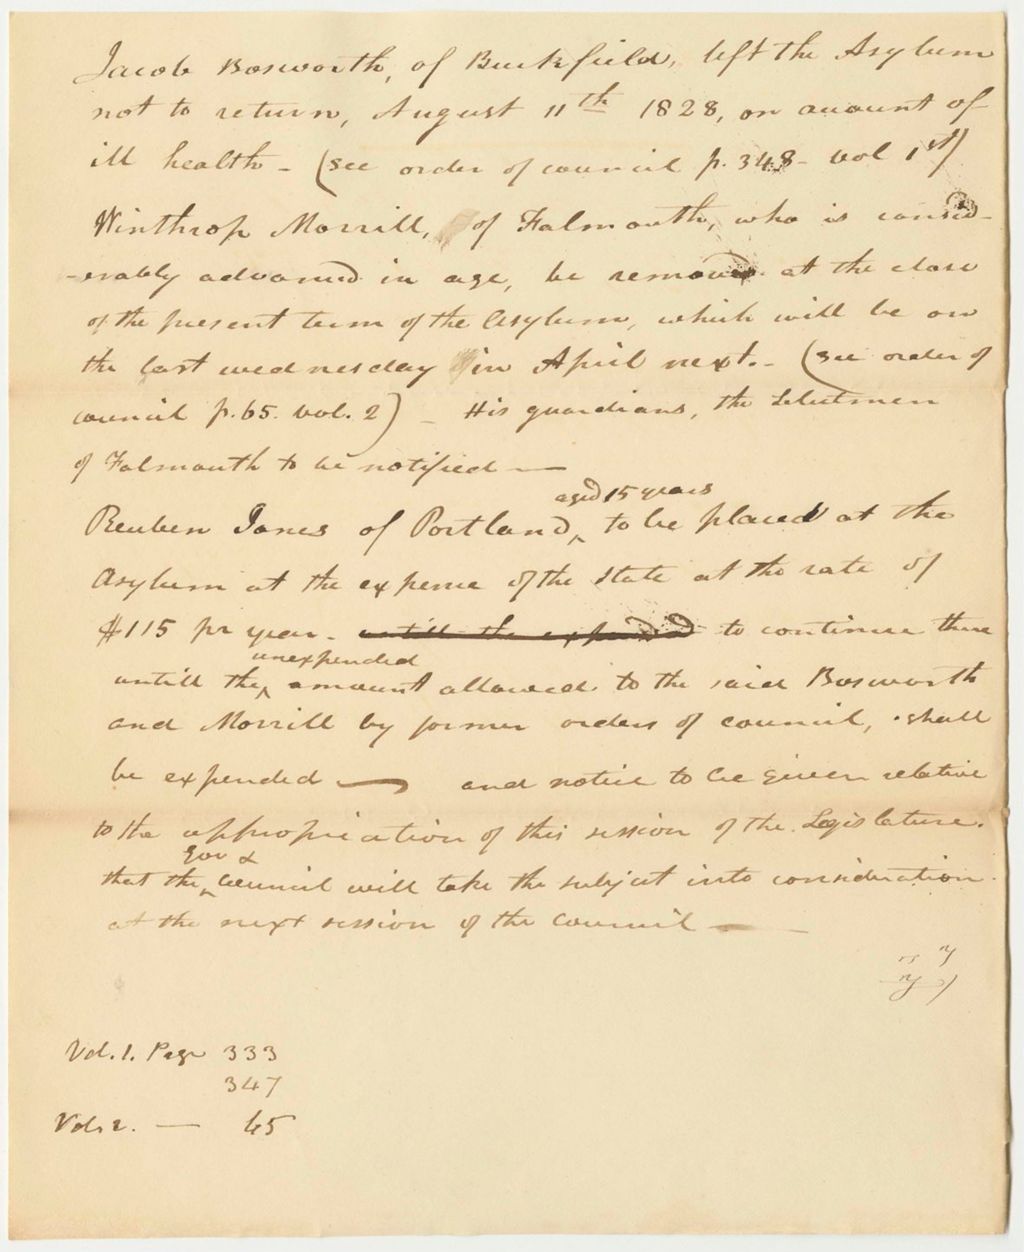 Jacob Bosworth, of Buckfield, left the Asylum
not to return, August 11th 1828, on account of
ill health - (see order of council p. 348 - vol 1st)
Winthrop Morrill, of Falmouth, who is consid-
-erably advanced in age, be removed at the close
of the present term of the Asylum, which will be on
the last wednesday in April next. - (see order of
council p. 65. vol. 2) - His guardians, the Selectmen
of Falmouth to be notified —
aged 15 years
Reuben Jones of Portland, ‸ to be placed at the
Asylum at the expense of the State at the rate of
$115 pr year. - untill the expended to continue there
unexpended
untill the ‸ amount allowed to the said Bosworth
and Morrill by former orders of council, shall
be expended — and notice to be given relative
to the appropriation of this session of the Legislature.
Gov &
that the ‸ Council will take the subject into consideration
at the next session of the Council —
Vol. 1. Page 333
347
Vol. 2. — 65